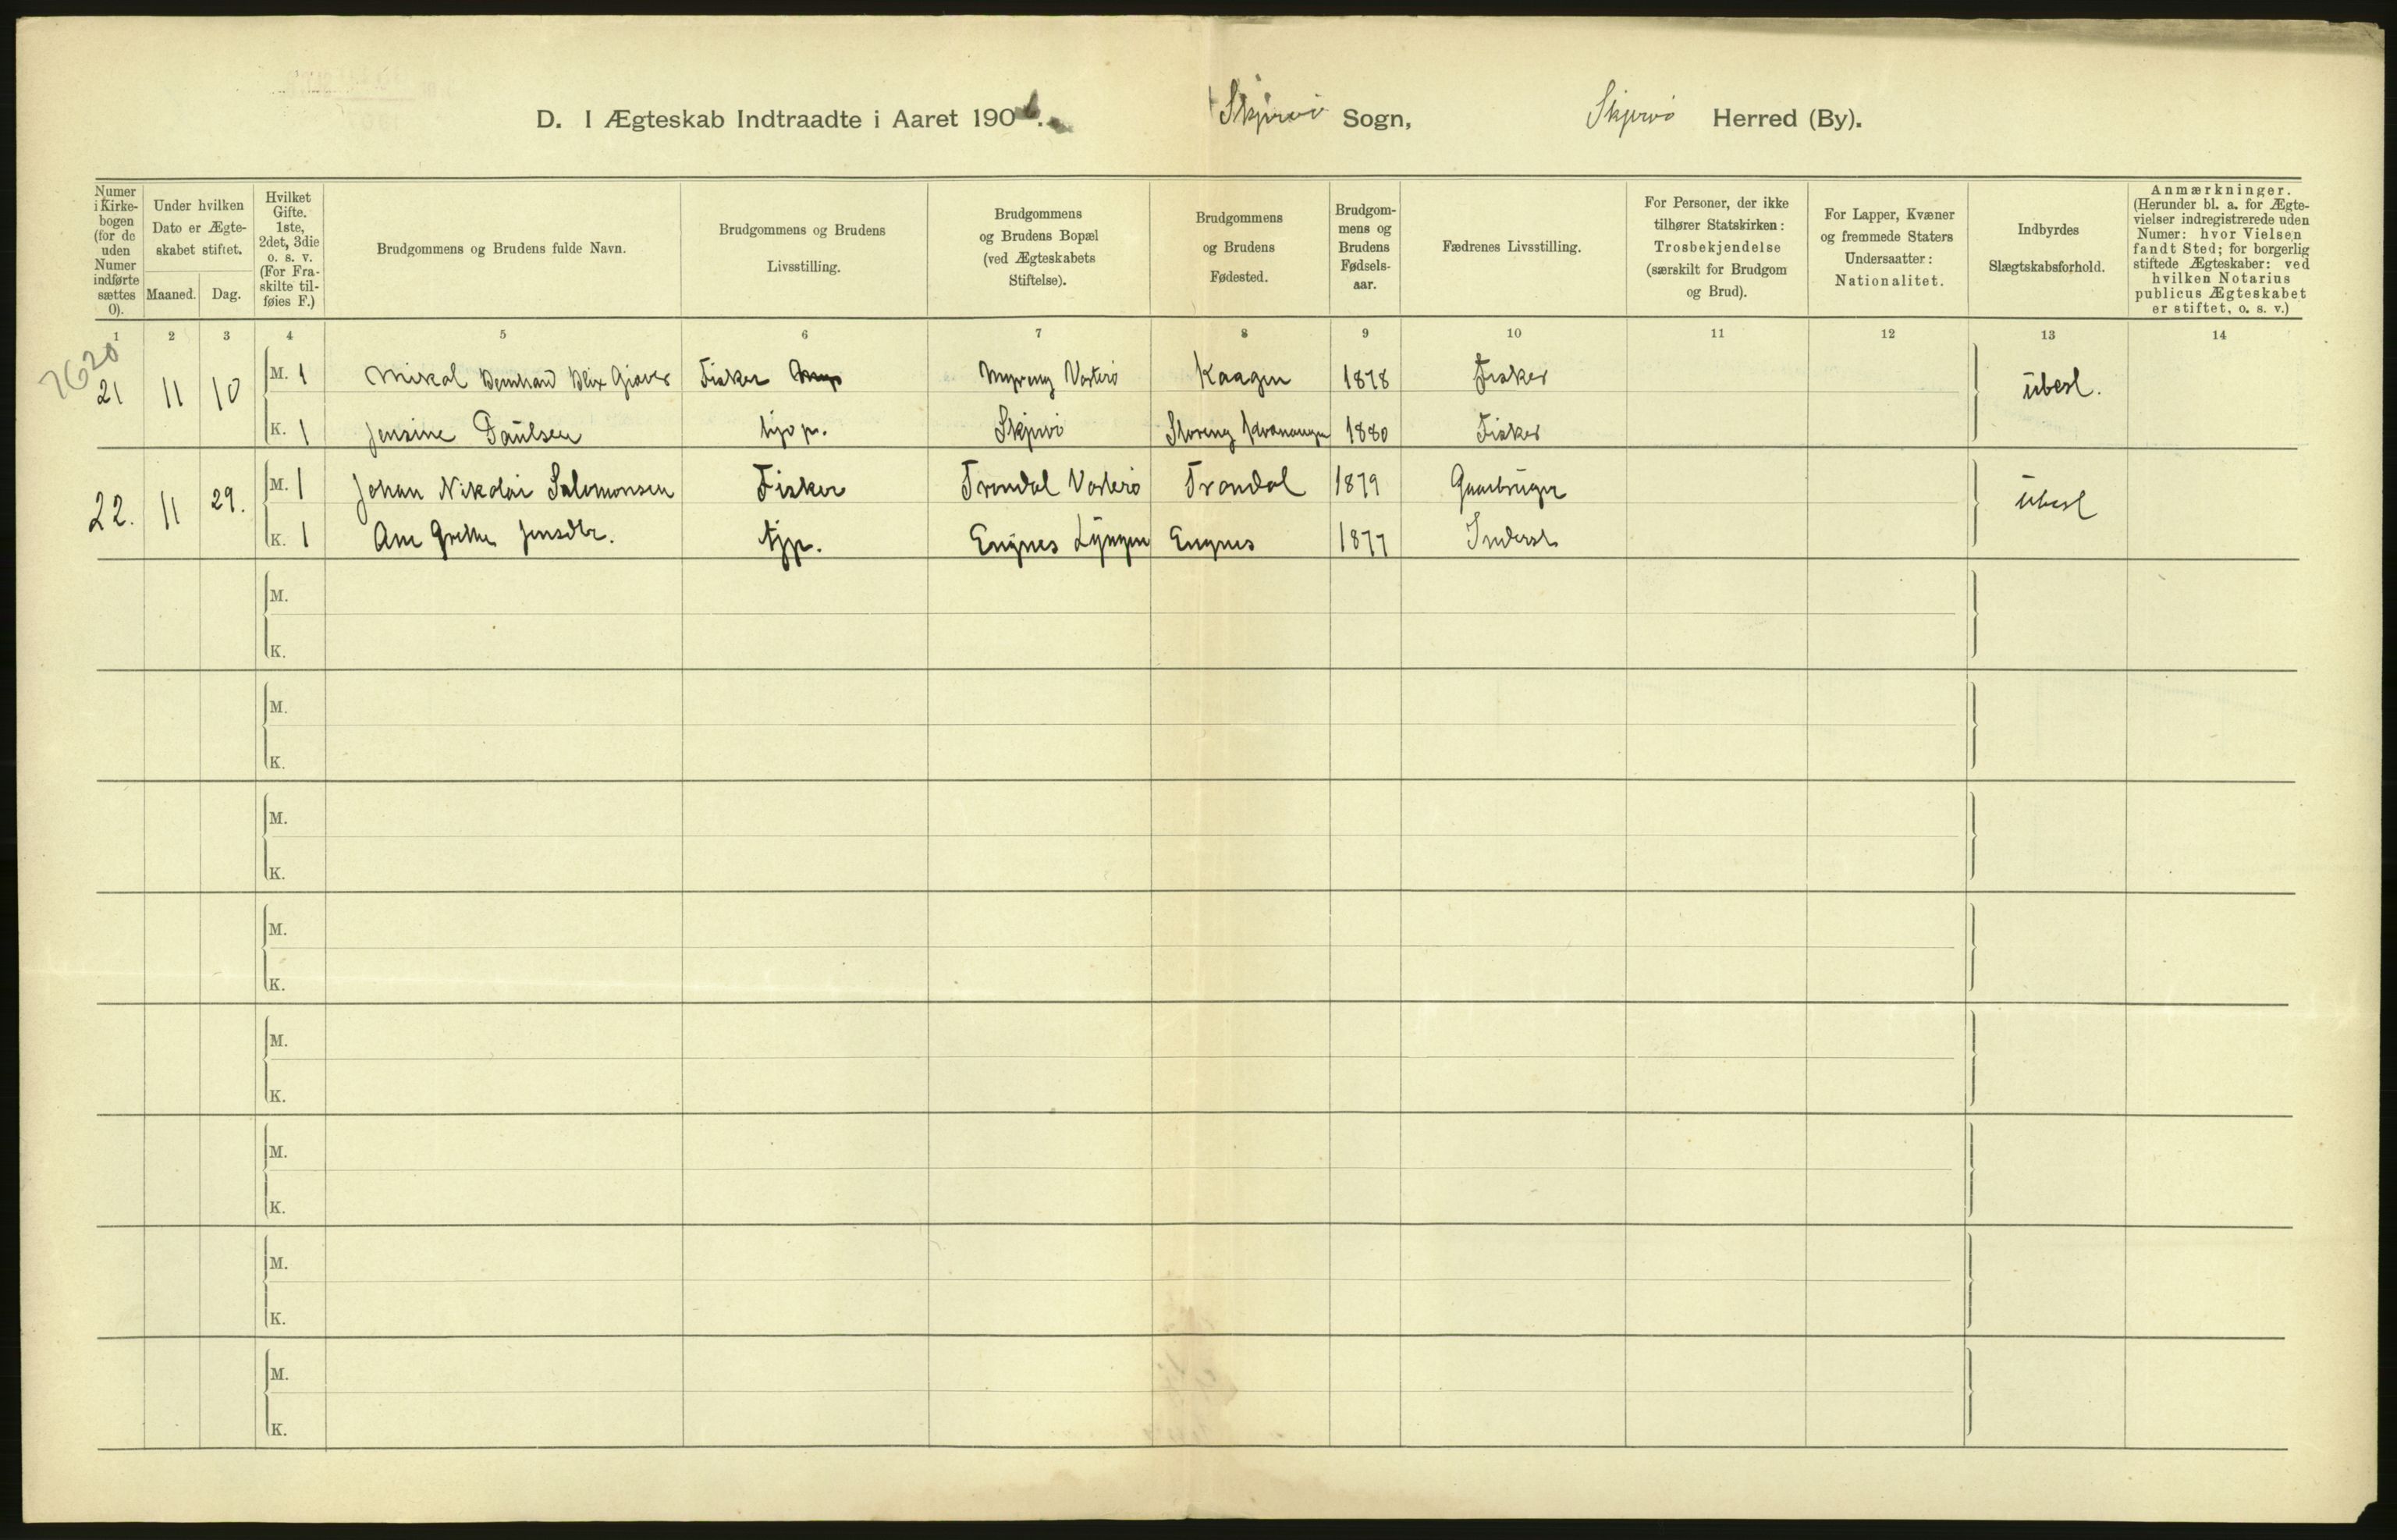 D. I Ægteskab Indtraadte i Aaret 1906. Skjervö Sogn, Skjervö Herred (By).
Numer i Kirke-bogen (for de uden Numer indførte sættes 0).
Under hvilken Dato er Ægte-skabet stiftet.
Maaned. Dag.
Hvilket Gifte. 1ste, 2det, 3die o. s. v. (For Fra-skilte til-føies F.)
Brudgommens og Brudens fulde Navn.
Brudgommens og Brudens Livsstilling.
Brudgommens og Brudens Bopæl (ved Ægteskabets Stiftelse).
Brudgommens og Brudens Fødested.
Brudgom-mens og Brudens Fødsels-aar.
Fædrenes Livsstilling.
For Personer, der ikke tilhører Statskirken: Trosbekjendelse (særskilt for Brudgom og Brud).
For Lapper, Kvæner og fremmede Staters Undersaatter: Nationalitet.
Indbyrdes Slægtskabsforhold.
Anmærkninger. (Herunder bl. a. for Ægte-vielser indregistrerede uden Numer: hvor Vielsen fandt Sted; for borgerlig stiftede Ægteskaber: ved hvilken Notarius publicus Ægteskabet er stiftet, o. s. v.)
1 2 3 4 5 6 7 8 9 10 11 12 13 14
7620
21 11 10 M. 1 Mikal Bernhard Blix Giæver Fisker Myreng Vorterö Kaagen 1878 Fisker ubesl.
K. 1 Jensine Paulsen Skjervö Storeng Kvænangen 1880 Fisker
22. 11 29. M. 1 Johan Nikolai Salomonsen Fisker Trondal Vorterö Trondal 1879 Gaardbruger ubesl
K. 1 Ane Grethe Jensdtr. tjp. Engnes Lyngen Engnes 1877 Inderst
M.
K.
M.
K.
M.
K.
M.
K.
M.
K.
M.
K.
M.
K.
M.
K.